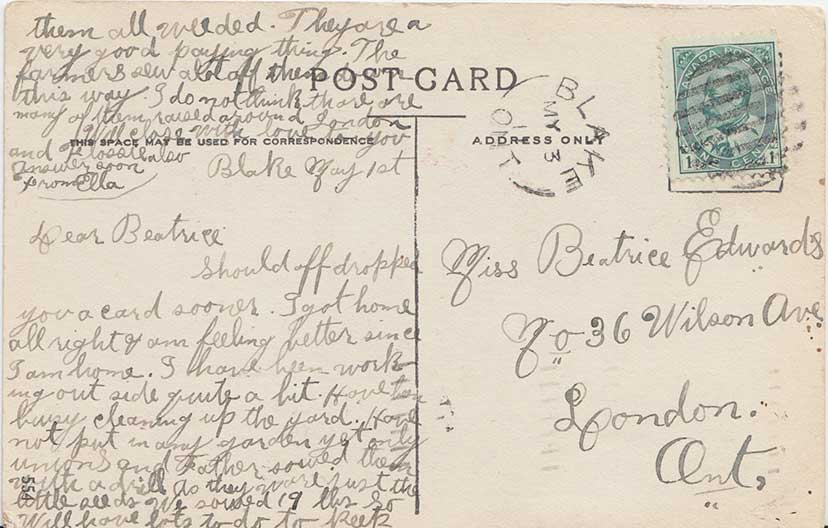 them all weeded. They are a
very good paying thing. The
farmers sew alot off them down
this way. I do not think there are
many of them raised around London
Will close with love to you
and Flossie also
answer soon
from Ella
POST CARD
THIS SPACE MAY BE USED FOR CORRESPONDENCE
ADDRESS ONLY
Blake May 1st
Dear Beatrice
Should off dropped
you a card sooner. I got home
all right & am feeling better since
I am home. I have been work-
ing out side quite a bit. Have been
busy cleaning up the yard. Have
not put in any garden yet only
unions and Father sowed them
with a drill as they were just the
little seeds we sowed 19 lbs So
Will have lots to do to keek
554
BLAKE
MY 3
ONT
CANADA POSTAGE
ONE CENT
1 1
Miss Beatrice Edwards
No 36 Wilson Ave
London.
Ont,